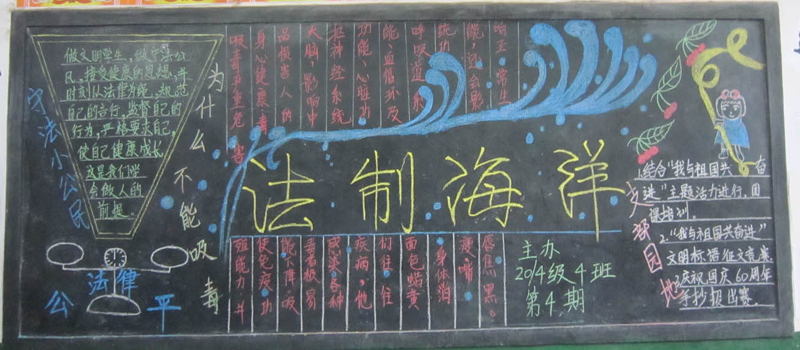 守法小公民
做文明学生，做守法公
民，接受健康的思想，并
时刻从法律为绳，规范
自己的言行，监督自己的
行为，严格要求自己，
使自己健康成长
这是我们学
会做人的
前提。
法律
公 平
为什么不能吸毒
吸毒严重危害
身心健康，毒
品损害人的
大脑，影响中
枢神经系统
功能，心脏功
能，血循环及
呼吸道系
统功
能，还会影
响正常生
殖能力，并
使免疫功
能下降，吸
毒者极易
感染各种
疾病，他
们往往
面色蜡黄
身体消
瘦，嘴
唇焦黑。
法制海洋
主办
2014级4班
第4期
支部园地
1.结合“我与祖国共奋
进”主题活力进行，团
课培训。
2.“我与祖国共奋进”
文明标语征文竞赛
3.庆祝国庆60周年
手抄报出赛。